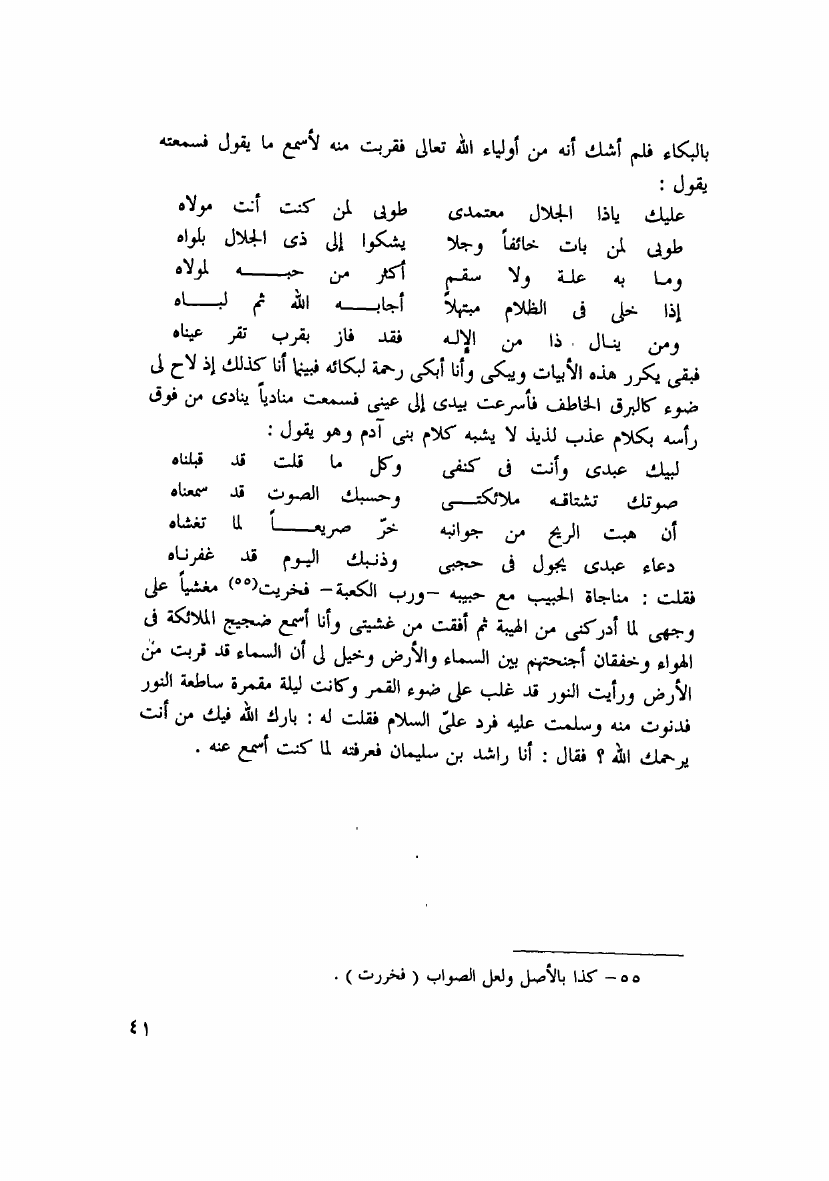 بالبكاء فلم أشك أنه من أولياء الله تعالى فقربت منه لأسمع ما يقول فسمعته
يقول :
عليك ياذا الجلال معتمدى طوبى لمن كنت أنت مولاه
طوبى لمن بات خائفاً وجلا يشكوا إلى ذى الجلال بلواه
وما به علة ولا سقم أكثر من حبه لمولاه
إذا خلى فى الظلام مبتهلاً أجابه الله ثم لباه
ومن ينال ذا من الإله فقد فاز بقرب تقر عيناه
فبقى يكرر هذه الأبيات ويبكى وأنا أبكى رحمة لبكائه فبينما أنا كذلك إذ لاح لى
ضوء كالبرق الخاطف فأسرعت بيدى إلى عينى فسمعت منادياً ينادى من فوق
رأسه بكلام عذب لذيذ لا يشبه كلام بنى آدم وهو يقول :
لبيك عبدى وأنت فى كنفى وكل ما قلت قد قبلناه
صوتك تشتاقه ملائكتى وحسبك الصوت قد سمعناه
أن هبت الريح من جوانبه خرّ صريعاً لما تغشاه
دعاء عبدى يجول فى حجبى وذنبك اليوم قد غفرناه
فقلت : مناجاة الحبيب مع حبيبه –ورب الكعبة– فخريت(٥٥) مغشياً على
وجهى لما أدركنى من الهيبة ثم أفقت من غشيتى وأنا أسمع ضجيج الملائكة فى
الهواء وخفقان أجنحتهم بين السماء والأرض وخيل لى أن السماء قد قربت من
الأرض ورأيت النور قد غلب على ضوء القمر وكانت ليلة مقمرة ساطعة النور
فدنوت منه وسلمت عليه فرد علىّ السلام فقلت له : بارك الله فيك من أنت
يرحمك الله ؟ فقال : أنا راشد بن سليمان فعرفته لما كنت أسمع عنه .
٥٥ – كذا بالأصل ولعل الصواب ( فخررت ) .
٤١